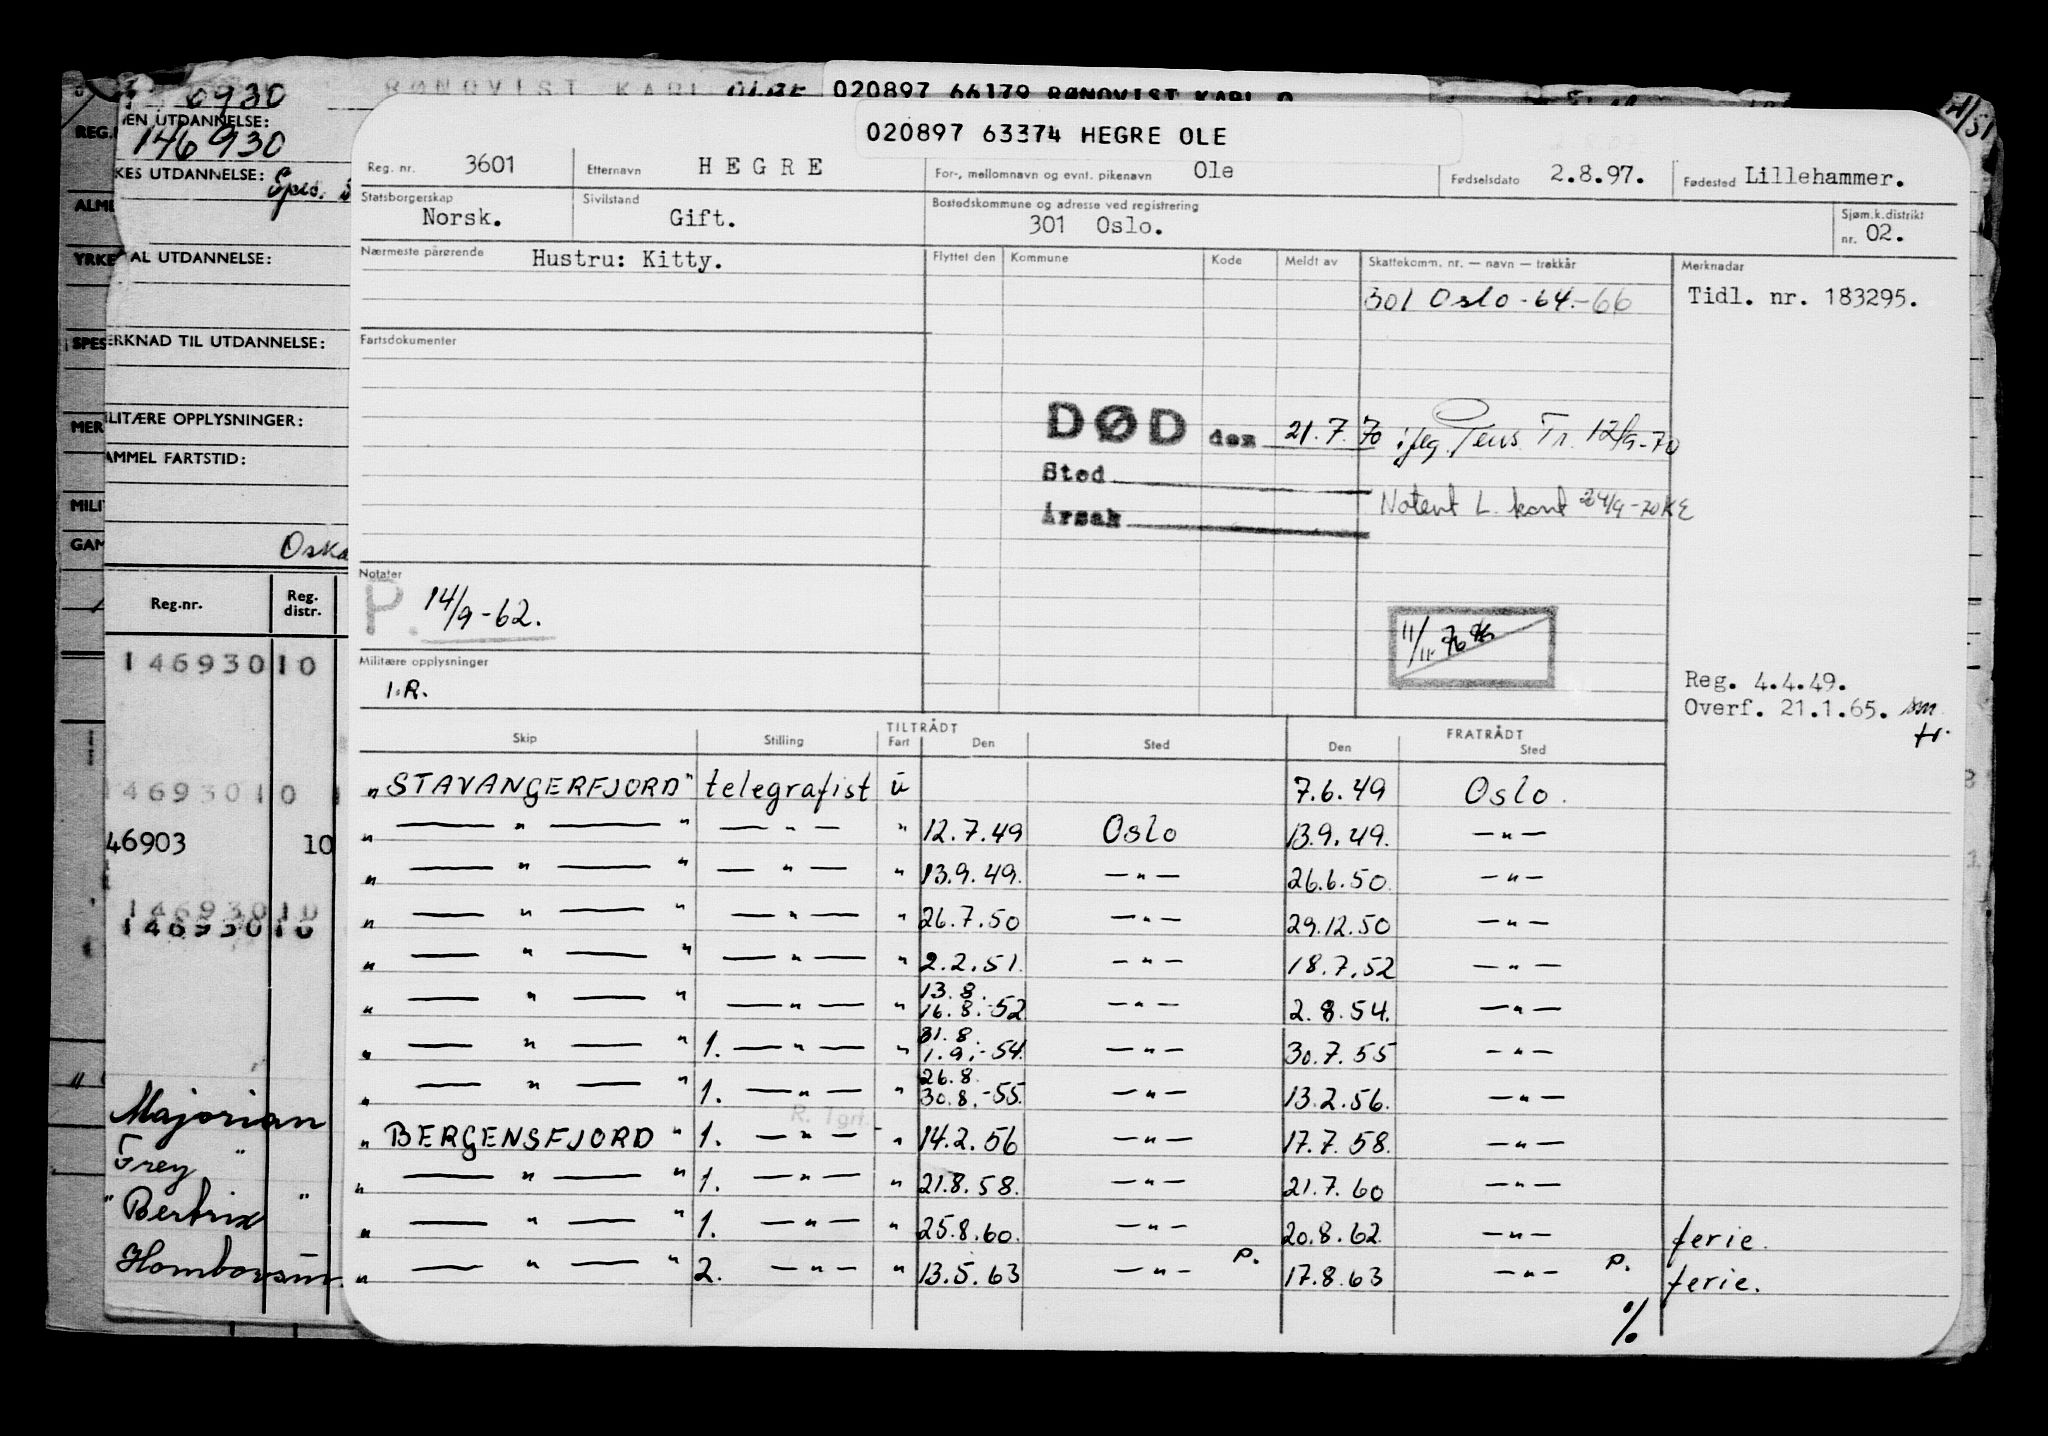 6930
RØNQVIST KARL OLAF 020897 66179 RØNQVIST KARL O
EN UTDANNELSE:
REG.
146930
KES UTDANNELSE: Spes.
ALM
YRKE AL UTDANNELSE:
SPES ERKNAD TIL UTDANNELSE:
MER ILITÆRE OPPLYSNINGER:
AMMEL FARTSTID:
MILI
GAM
Oska
Reg.nr. Reg. distr.
14693010
14693010
46903 10
14693010
14693010
Majorian
Frey "
"Bertrix "
020897 63374 HEGRE OLE
Reg. nr. 3601 Etternavn HEGRE For-, mellomnavn og evnt. pikenavn Ole Fødselsdato 2.8.97. Fødested Lillehammer.
Statsborgerskap Norsk. Sivilstand Gift. Bostedskommune og adresse ved registrering 301 Oslo. Sjøm.k.distrikt nr. 02.
Nærmeste pårørende Hustru: Kitty. Flyttet den Kommune Kode Meldt av Skattekomm. nr. — navn — trekkår Merknader
301 Oslo -64.-66 Tidl. nr. 183295.
Fartsdokumenter
DØD den 21.7.70 ifeg. Pens. Tr. 12/9-70
Sted
Notert L. kont 24/9-70 KE
Årsak
Notater
P. 14/9-62.
11/11-76
Militære opplysninger
I.R.
Reg. 4.4.49.
Overf. 21.1.65. sm
tr.
TILTRÅDT FRATRÅDT
Skip Stilling Fart Den Sted Den Sted
"STAVANGERFJORD" telegrafist u 7.6.49 Oslo.
" — " — " — " — " 12.7.49 Oslo 13.9.49. — " —
" — " — " — " — " 13.9.49. — " — 26.6.50. — " —
" — " — " — " — " 26.7.50 — " — 29.12.50 — " —
" — " — " — " — " 2.2.51. — " — 18.7.52 — " —
" — " — " — " — " 13.8. 16.8.-52 — " — 2.8.54. — " —
" — " — " 1. — " — " 31.8. 1.9.-54. — " — 30.7.55 — " —
" — " — " 1. — " — " 26.8. 30.8.-55. — " — 13.2.56. — " —
R. Tgrf.
"BERGENSFJORD" 1. — " — " 14.2.56 — " — 17.7.58. — " —
" — " — " 1. — " — " 21.8.58. — " — 21.7.60 — " —
" — " — " 1. — " — " 25.8.60. — " — 20.8.62. — " — ferie.
" — " — " 2. — " — " 13.5.63 — " — P. 17.8.63 — " — P. ferie.
%